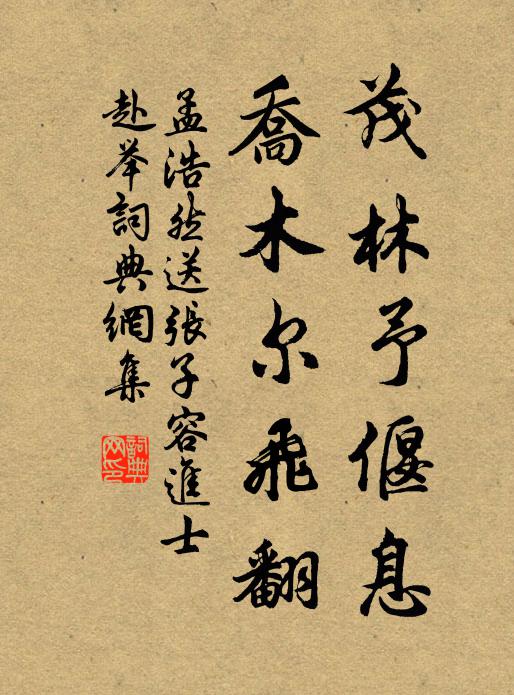 茂林予偃息
喬木尔飛翻
孟浩然送張子容進士
赴举詞典網集
詞典网印